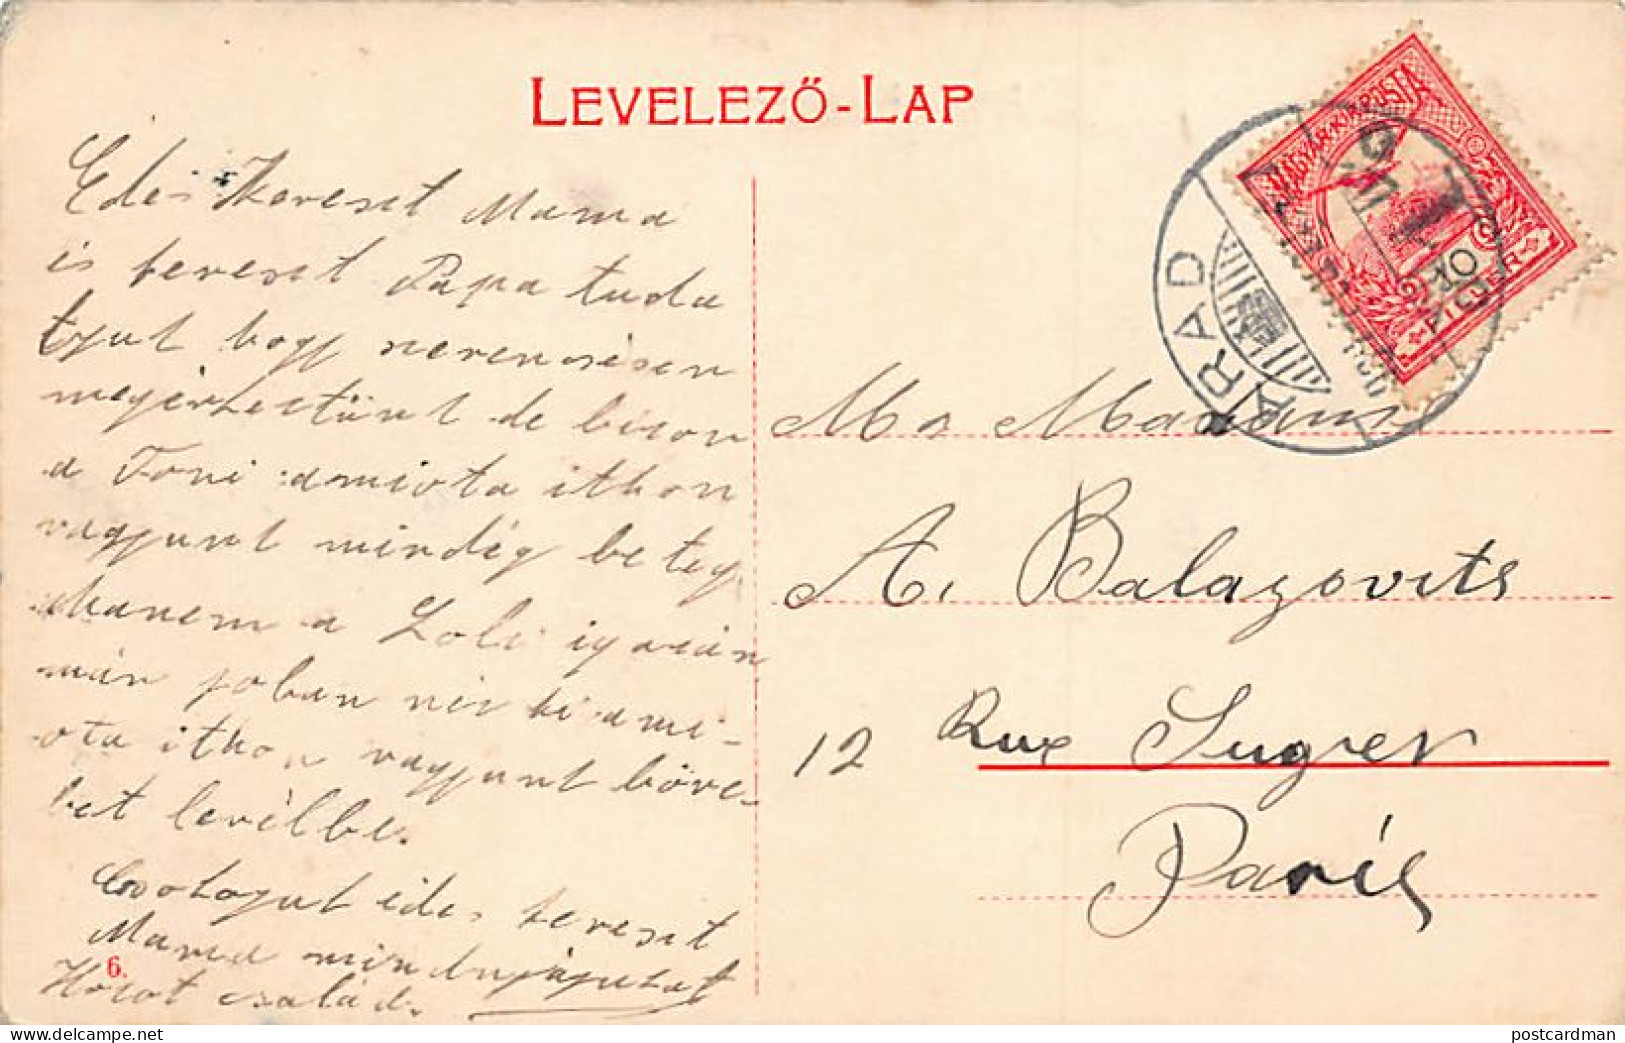 LEVELEZŐ-LAP
Édes Kereszt Mama
és kereszt Papa tuda
tjuk hogy szerencsésen
megérkeztünk de bizon
a Toni amiota ithon
vagyunk mindég beteg
hanem a Zoli igazán
már joban néz ki ami-
ota ithon vagyunk böve-
bet levélbe.
Csokoljuk édes kereszt
Mama mindnyájukat
család.
6.
MAGYAR KIR. POSTA
10
FILLÉR
ARAD
Ms Madame
A. Balazovits
12 Rue Suger
Paris
postcardman